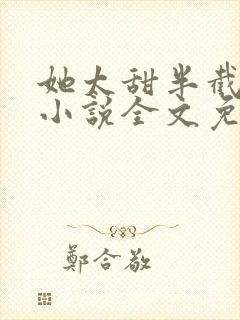 她太甜半截
小說全文免
鄭合敬